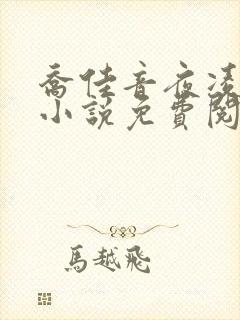 喬佳音夜凌
小說免費閱
馬越飛